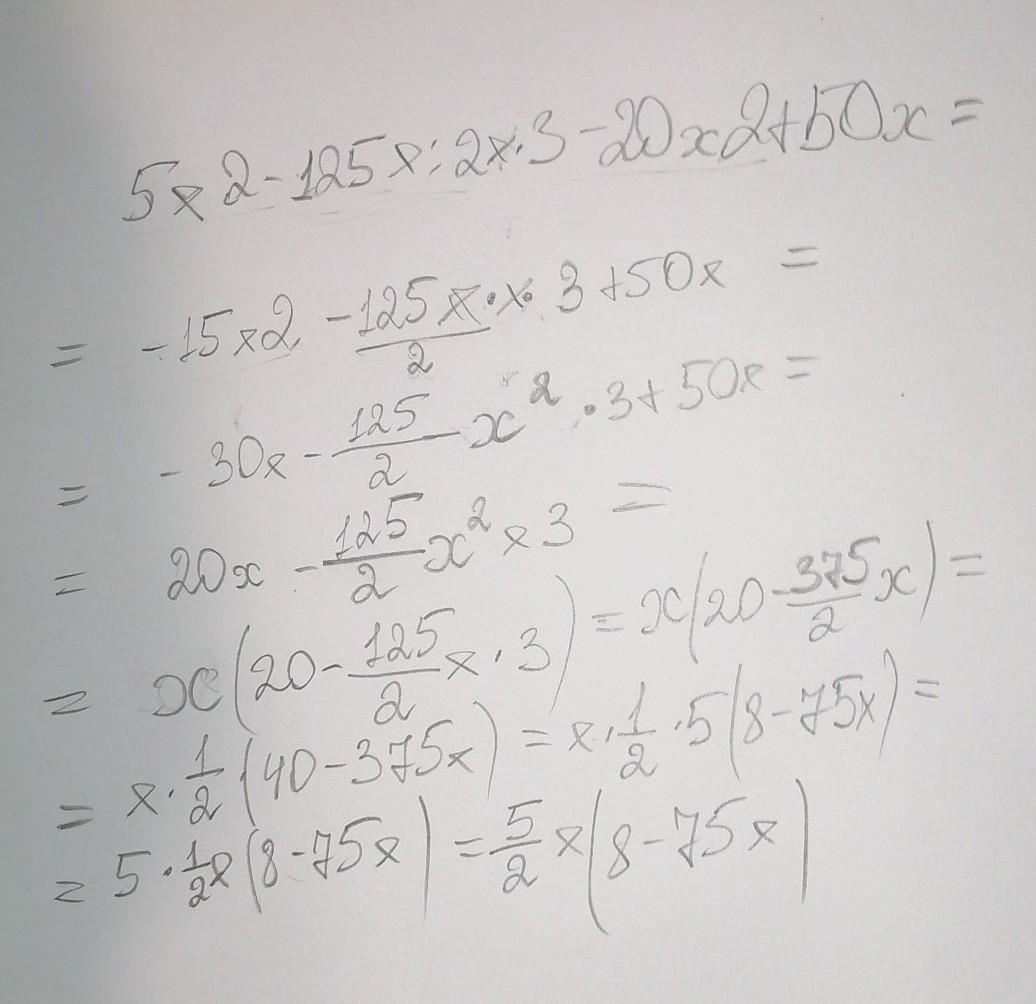 5x2-125x:2x·3-20x2+50x=
= -15x2 - 125x/2 ·x· 3+50x =
= -30x - 125/2 x² ·3+50x =
= 20x - 125/2 x² x 3 =
= x(20 - 125/2 x · 3) = x(20 - 375/2 x) =
= x· 1/2 (40-375x) = x· 1/2 ·5(8-75x) =
= 5· 1/2 x(8-75x) = 5/2 x(8-75x)